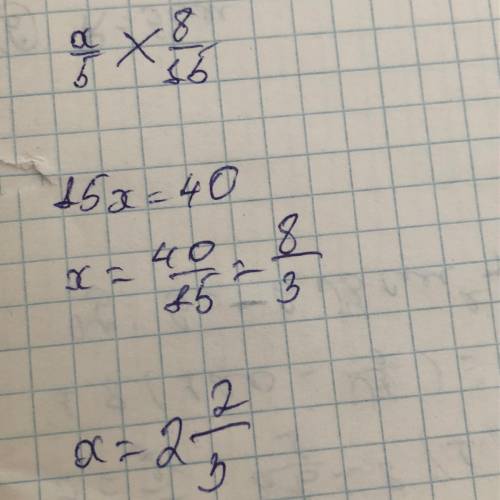 x/5 × 8/15
15x = 40
x = 40/15 = 8/3
x = 2 2/3